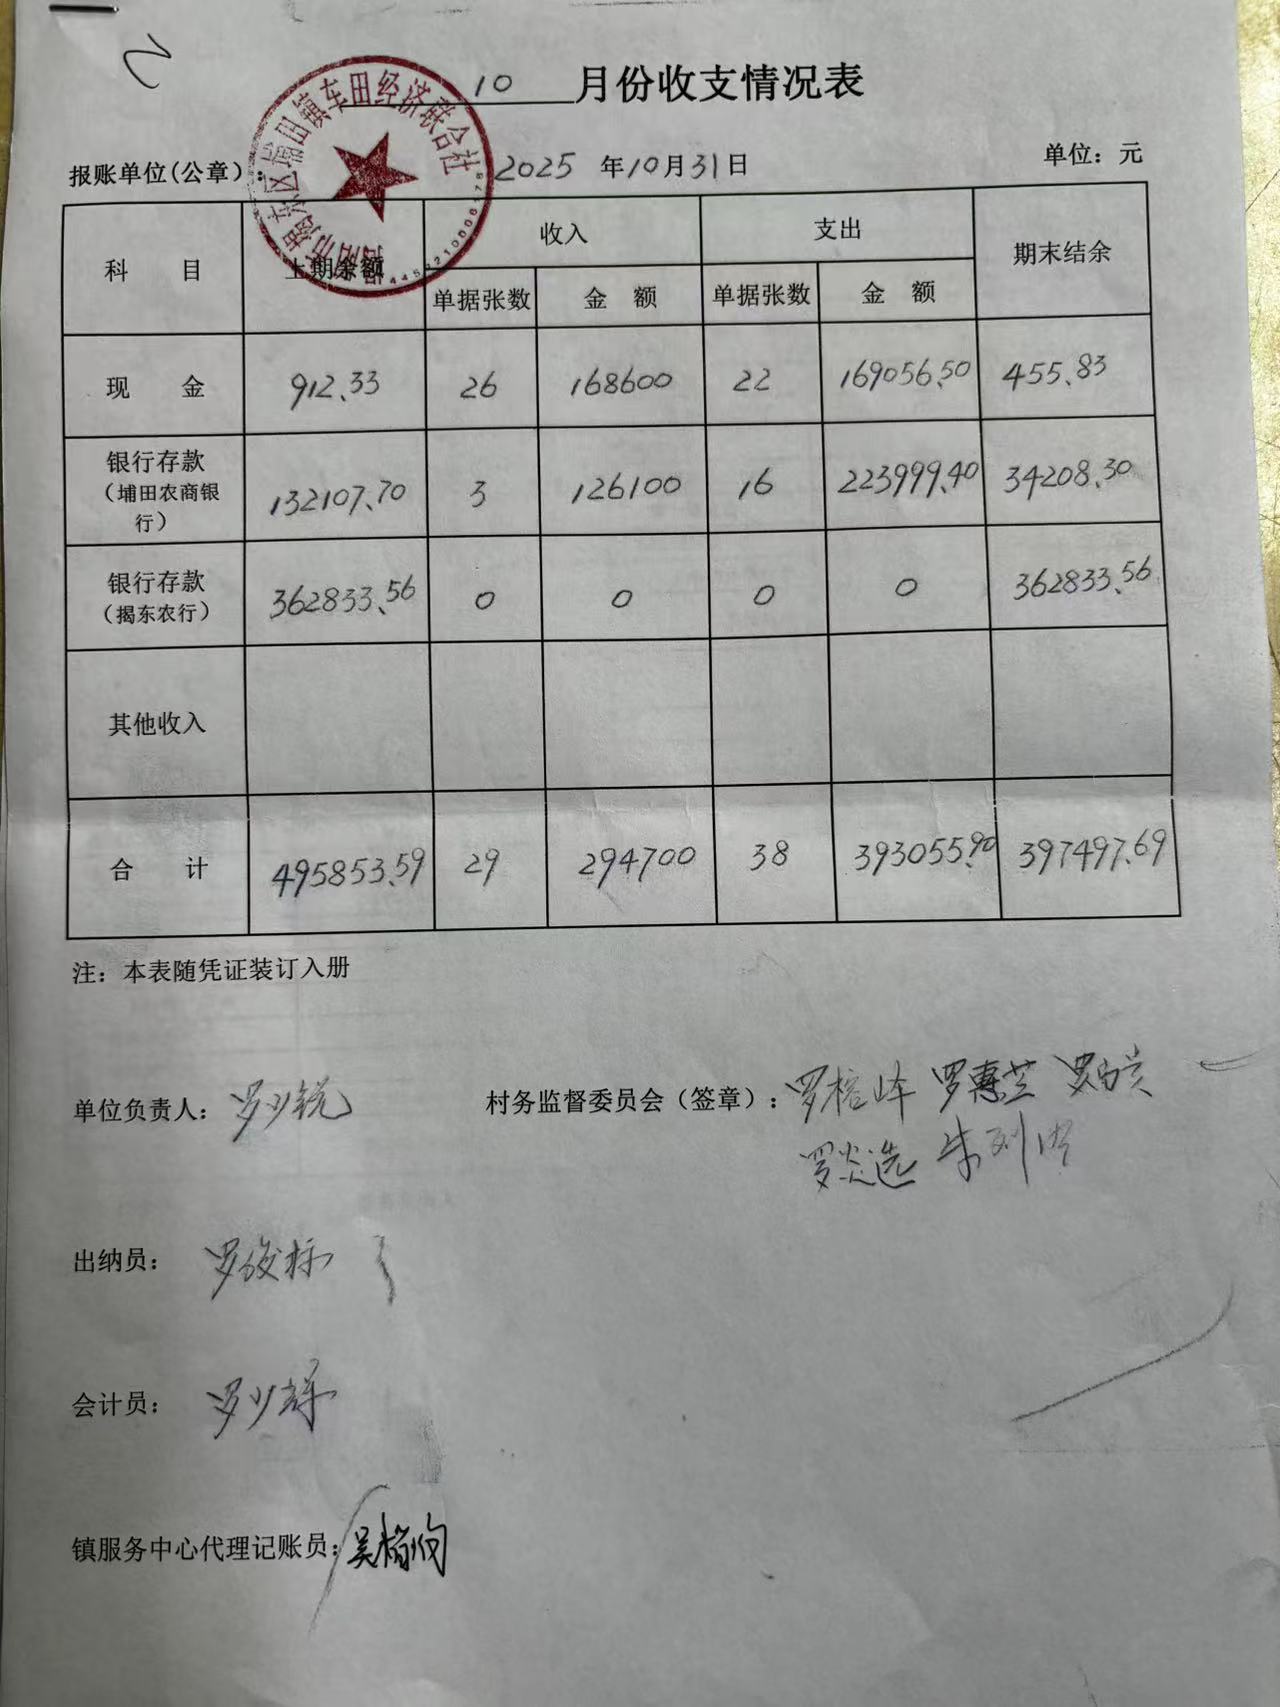 10 月份收支情况表
揭阳市揭东区埔田镇车田经济联合社
报账单位(公章): 2025 年10月31日 单位：元
科 目 上期余额 收入 支出 期末结余
单据张数 金 额 单据张数 金 额
现 金 912.33 26 168600 22 169056.50 455.83
银行存款
（埔田农商银
行） 132107.70 3 126100 16 223999.40 34208.30
银行存款
（揭东农行） 362833.56 0 0 0 0 362833.56
其他收入
合 计 495853.59 29 294700 38 393055.90 397497.69
注：本表随凭证装订入册
单位负责人：罗少锐 村务监督委员会（签章）：罗榕峰 罗惠芝
罗炎选
出纳员：罗俊标
会计员：
镇服务中心代理记账员：